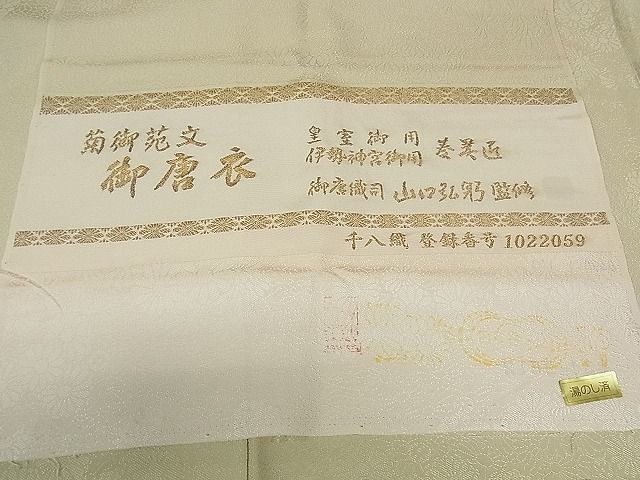 菊御苑文
御唐衣
皇室御用
伊勢神宮御用
御唐織司 山口弘躬 監修
千八織 登録番号 1022059
湯のし済